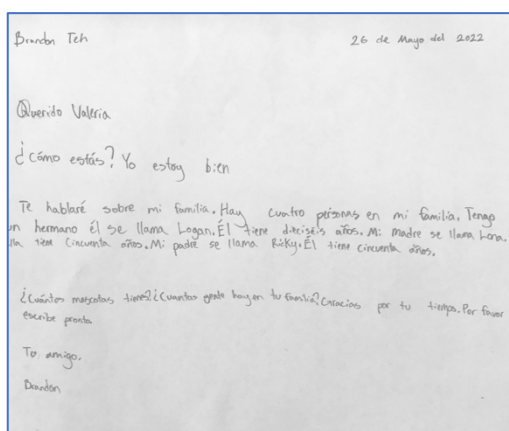 Brandon Teh 26 de Mayo del 2022
Querido Valeria
¿cómo estás? Yo estoy bien
Te hablaré sobre mi familia. Hay cuatro personas en mi familia. Tengo
un hermano él se llama Logan. Él tiene dieciséis años. Mi madre se llama Lona.
lla tiene Cincuenta años. Mi padre se llama Ricky. Él tiene circuenta años.
¿Cuántos mascotas tienes? ¿Cuantos gente hay en tu familia? Gracias por tu tiempo. Por favor
escribe pronto
Tu amigo,
Brandon